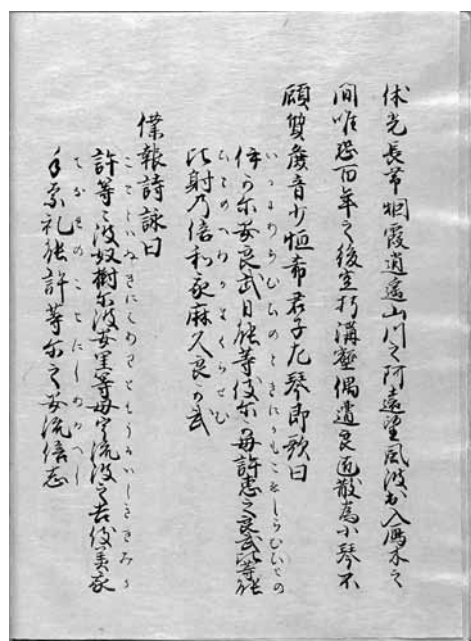 休光長帯烟霞逍遥山川之阿遠望風波出入鴈木之
間唯恐百年之後空朽溝壑偶遭良匠散為小琴不
顧質麁音少恒希君子左琴即歌曰
いかにあらむひのときにかもこゑしらむひとの
伊可尓安良武日能等伎尓可母許恵之良武比等能
ひさのへわかまくらせむ
比射乃倍和我麻久良可武
僕報詩詠曰
こととはぬきにはありともうるはしききみか
許等々波奴樹尓波安里等母宇流波之吉伎美我
てなれのことにしあるへし
手奈礼能許等尓之安流倍志